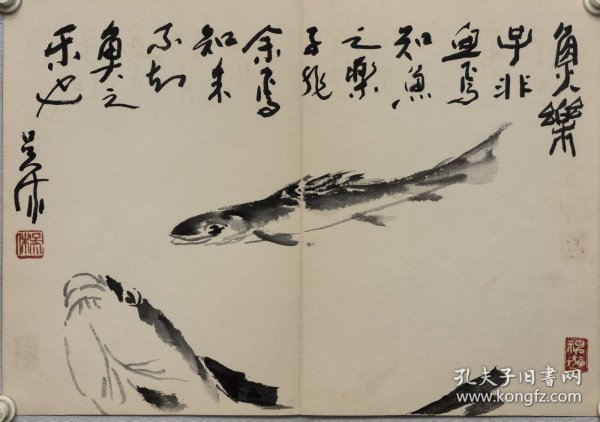 魚樂
子非
魚焉
知魚
之樂
子非
余焉
知余
不知
魚之
乐也
孔夫子旧书网
www.kongfz.com